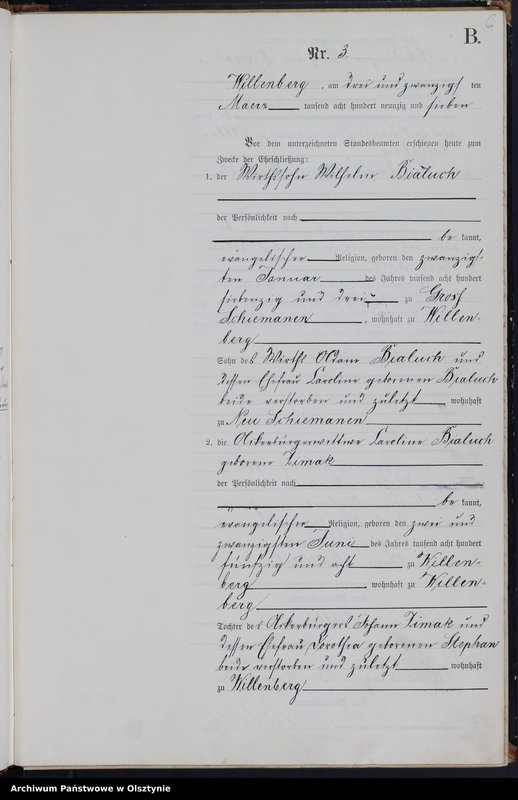 6
B.
Nr. 3.
Willenberg, am drei und zwanzigsten
Maerz tausend acht hundert neunzig und sieben
Vor dem unterzeichneten Standesbeamten erschienen heute zum
Zwecke der Eheschließung:
1. der Wirthssohn Wilhelm Bialuch
der Persönlichkeit nach
be kannt,
evangelischer Religion, geboren den zwanzig-
sten Januar des Jahres tausend acht hundert
siebenzig und drei zu Groß
Schiemanen, wohnhaft zu Willen-
berg
Sohn des Wirths Adam Bialuch und
dessen Ehefrau Caroline geborenen Bialuch
beide verstorben und zuletzt wohnhaft
zu Neu Schiemanen
2. die Ackerbürgerwittwe Caroline Bialuch
geborene Zimak
der Persönlichkeit nach
be kannt,
evangelischer Religion, geboren den zwei und
zwanzigsten Juni des Jahres tausend acht hundert
fünfzig und acht zu Willen-
berg, wohnhaft zu Willen-
berg
Tochter des Ackerbürgers Johann Zimak und
dessen Ehefrau Dorothea geborenen Stephan
beide verstorben und zuletzt wohnhaft
zu Willenberg
Archiwum Państwowe w Olsztynie